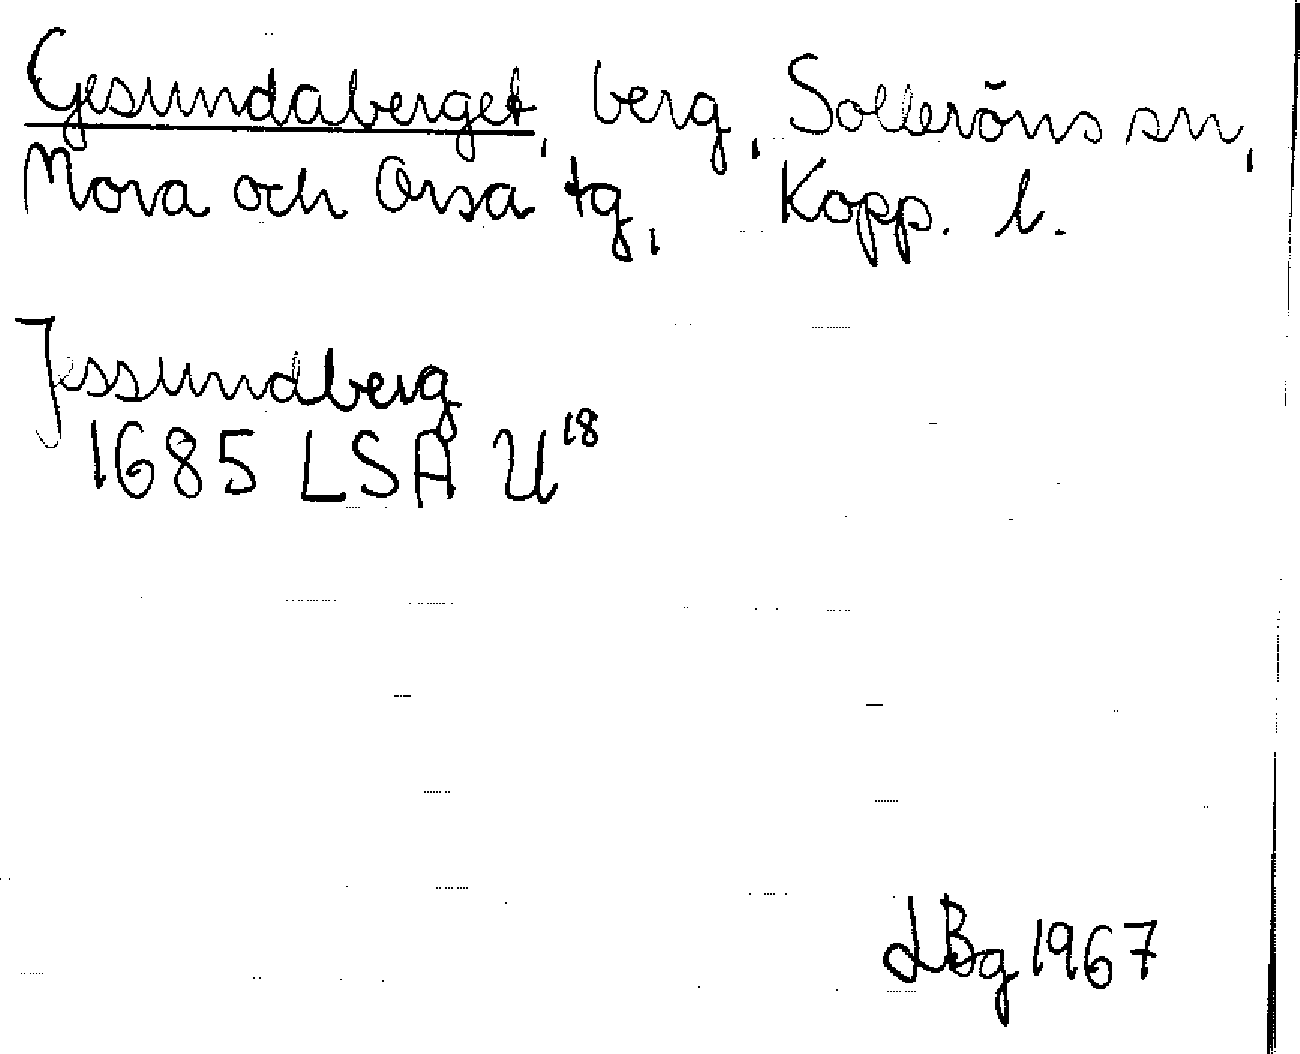 Gesundaberget, berg, Solleröns sn,
Mora och Orsa tg, Kopp. l.
Jessundberg
1685 LSA U18
LBg 1967